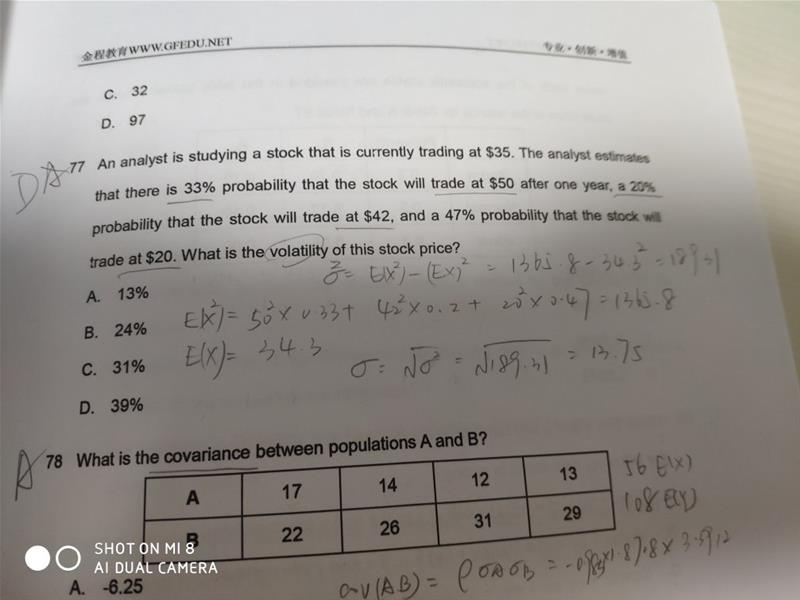 金程教育WWW.GFEDU.NET
专业·创新·增值
C. 32
D. 97
DA
77 An analyst is studying a stock that is currently trading at $35. The analyst estimates
that there is 33% probability that the stock will trade at $50 after one year, a 20%
probability that the stock will trade at $42, and a 47% probability that the stock will
trade at $20. What is the volatility of this stock price?
σ²= E(X²)-(EX)² = 1365.8-34.3² = 189.31
A. 13%
E(X²)= 50²×0.33+ 42²×0.2+ 20²×0.47=1365.8
B. 24%
E(X)= 34.3
C. 31%
σ= √σ² = √189.31 = 13.75
D. 39%
A
78 What is the covariance between populations A and B?
A 17 14 12 13
56 E(X)
B 22 26 31 29
108 E(Y)
A. -6.25
COV(AB) = ρσAσB =
SHOT ON MI 8
AI DUAL CAMERA